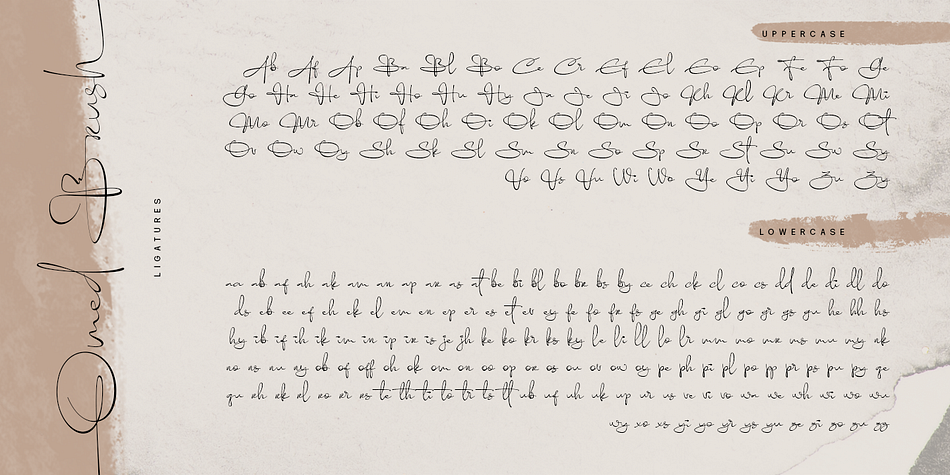 Omed Brush
LIGATURES
UPPERCASE
Ab Af Ap Ba Bl Bo Ce Cr Ef El Eo Ep Fe Fo Ge
Go Ha He Hi Ho Hu Hy Ja Je Ji Jo Kh Kl Kr Me Mi
Mo Mr Ob Of Oh Oi Ok Ol Om On Oo Op Or Os Ot
Ov Ow Oy Sh Sk Sl Sm Sn So Sp Sr St Su Sw Sy
Vo Vs Vu Wi Wo Ye Yi Yo Zu Zy
LOWERCASE
aa ab af ah ak am an ap ar as at be bi bl bo br bs by ce ch ck cl co cs dd de di dl do
ds eb ee ef eh ek el em en ep er es et ev ey fe fo fr fs ge gh gi gl go gr gs gu he hh hs
hy ib if ih ik im in ip ir is je jh ke ko kr ks ky le li ll lo lr mm mo mr ms mu my
as au ay ob of off oh ok om on oo op or os ou ov ow oy pe ph pi pl po pp pr ps pu py qe
qu te th ti to tr ts tt ub uf uh uk up ur us ve vi vo we wh wi wo wu
wy xo xs yi yo yr ys yu ze zi zo zu zz